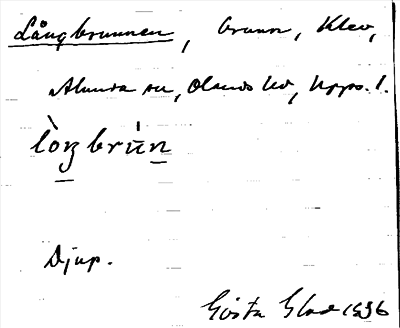 Långbrunnen, brunn, Klev,
Alunda sn, Olands hd, Upps. l.
lòŋbrùn
Djup.
Gösta Glad 1936